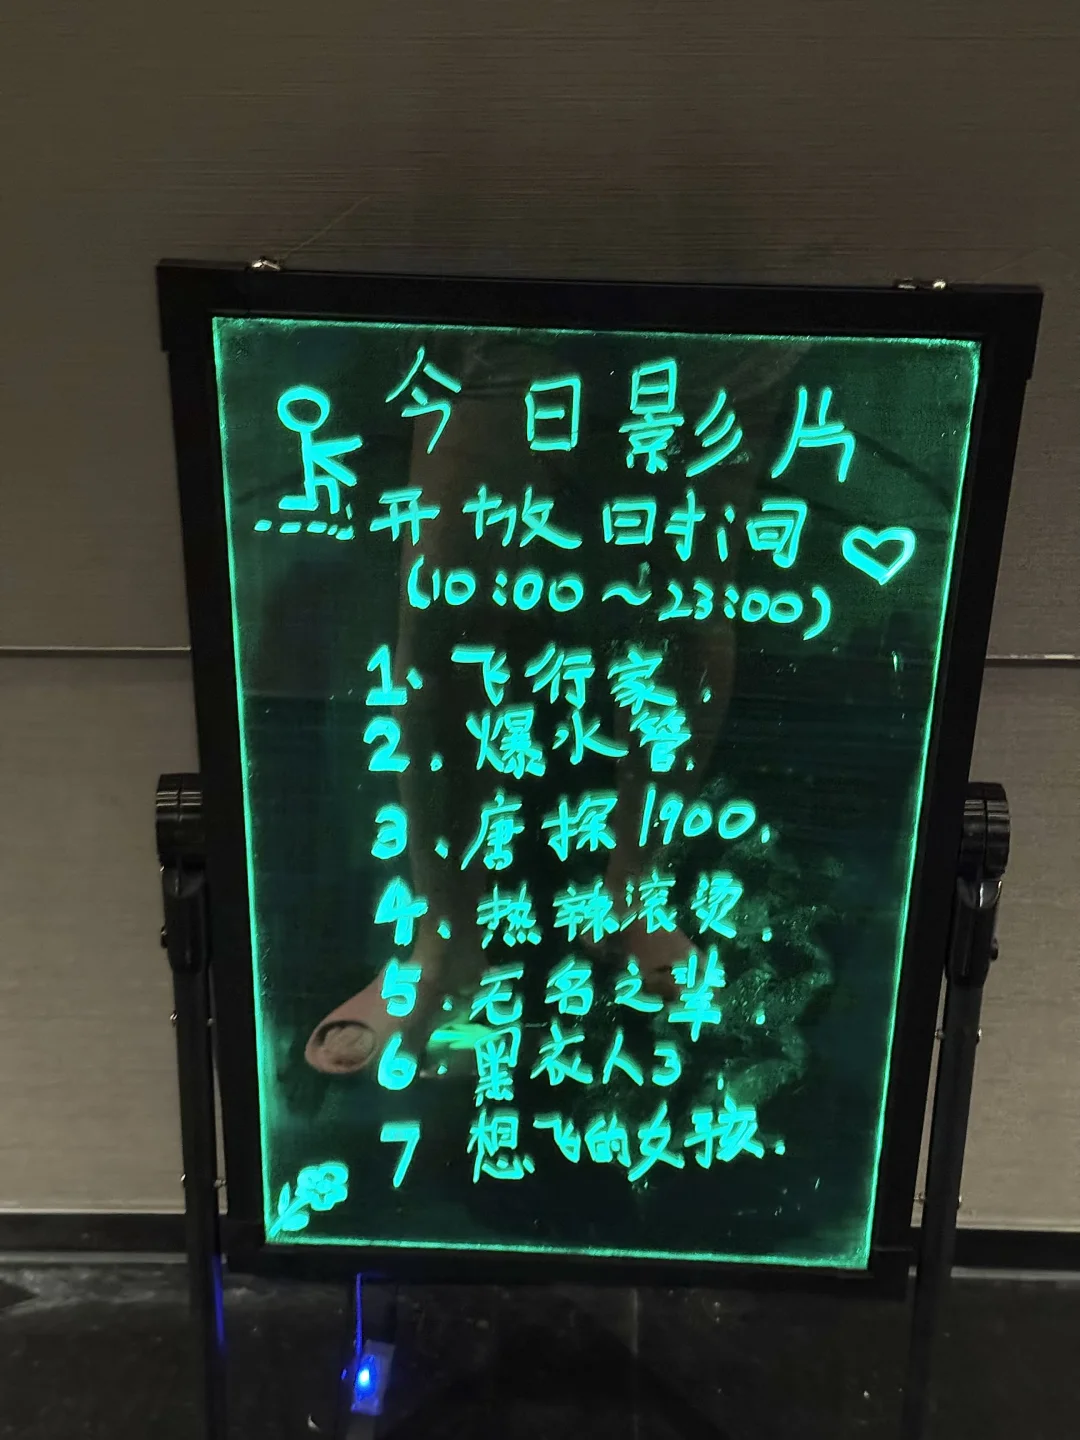 今日影片
开放时间
(10:00~23:00)
1.飞行家.
2.爆水管.
3.唐探1900.
4.热辣滚烫.
5.无名之辈.
6.黑衣人3.
7 想飞的女孩.